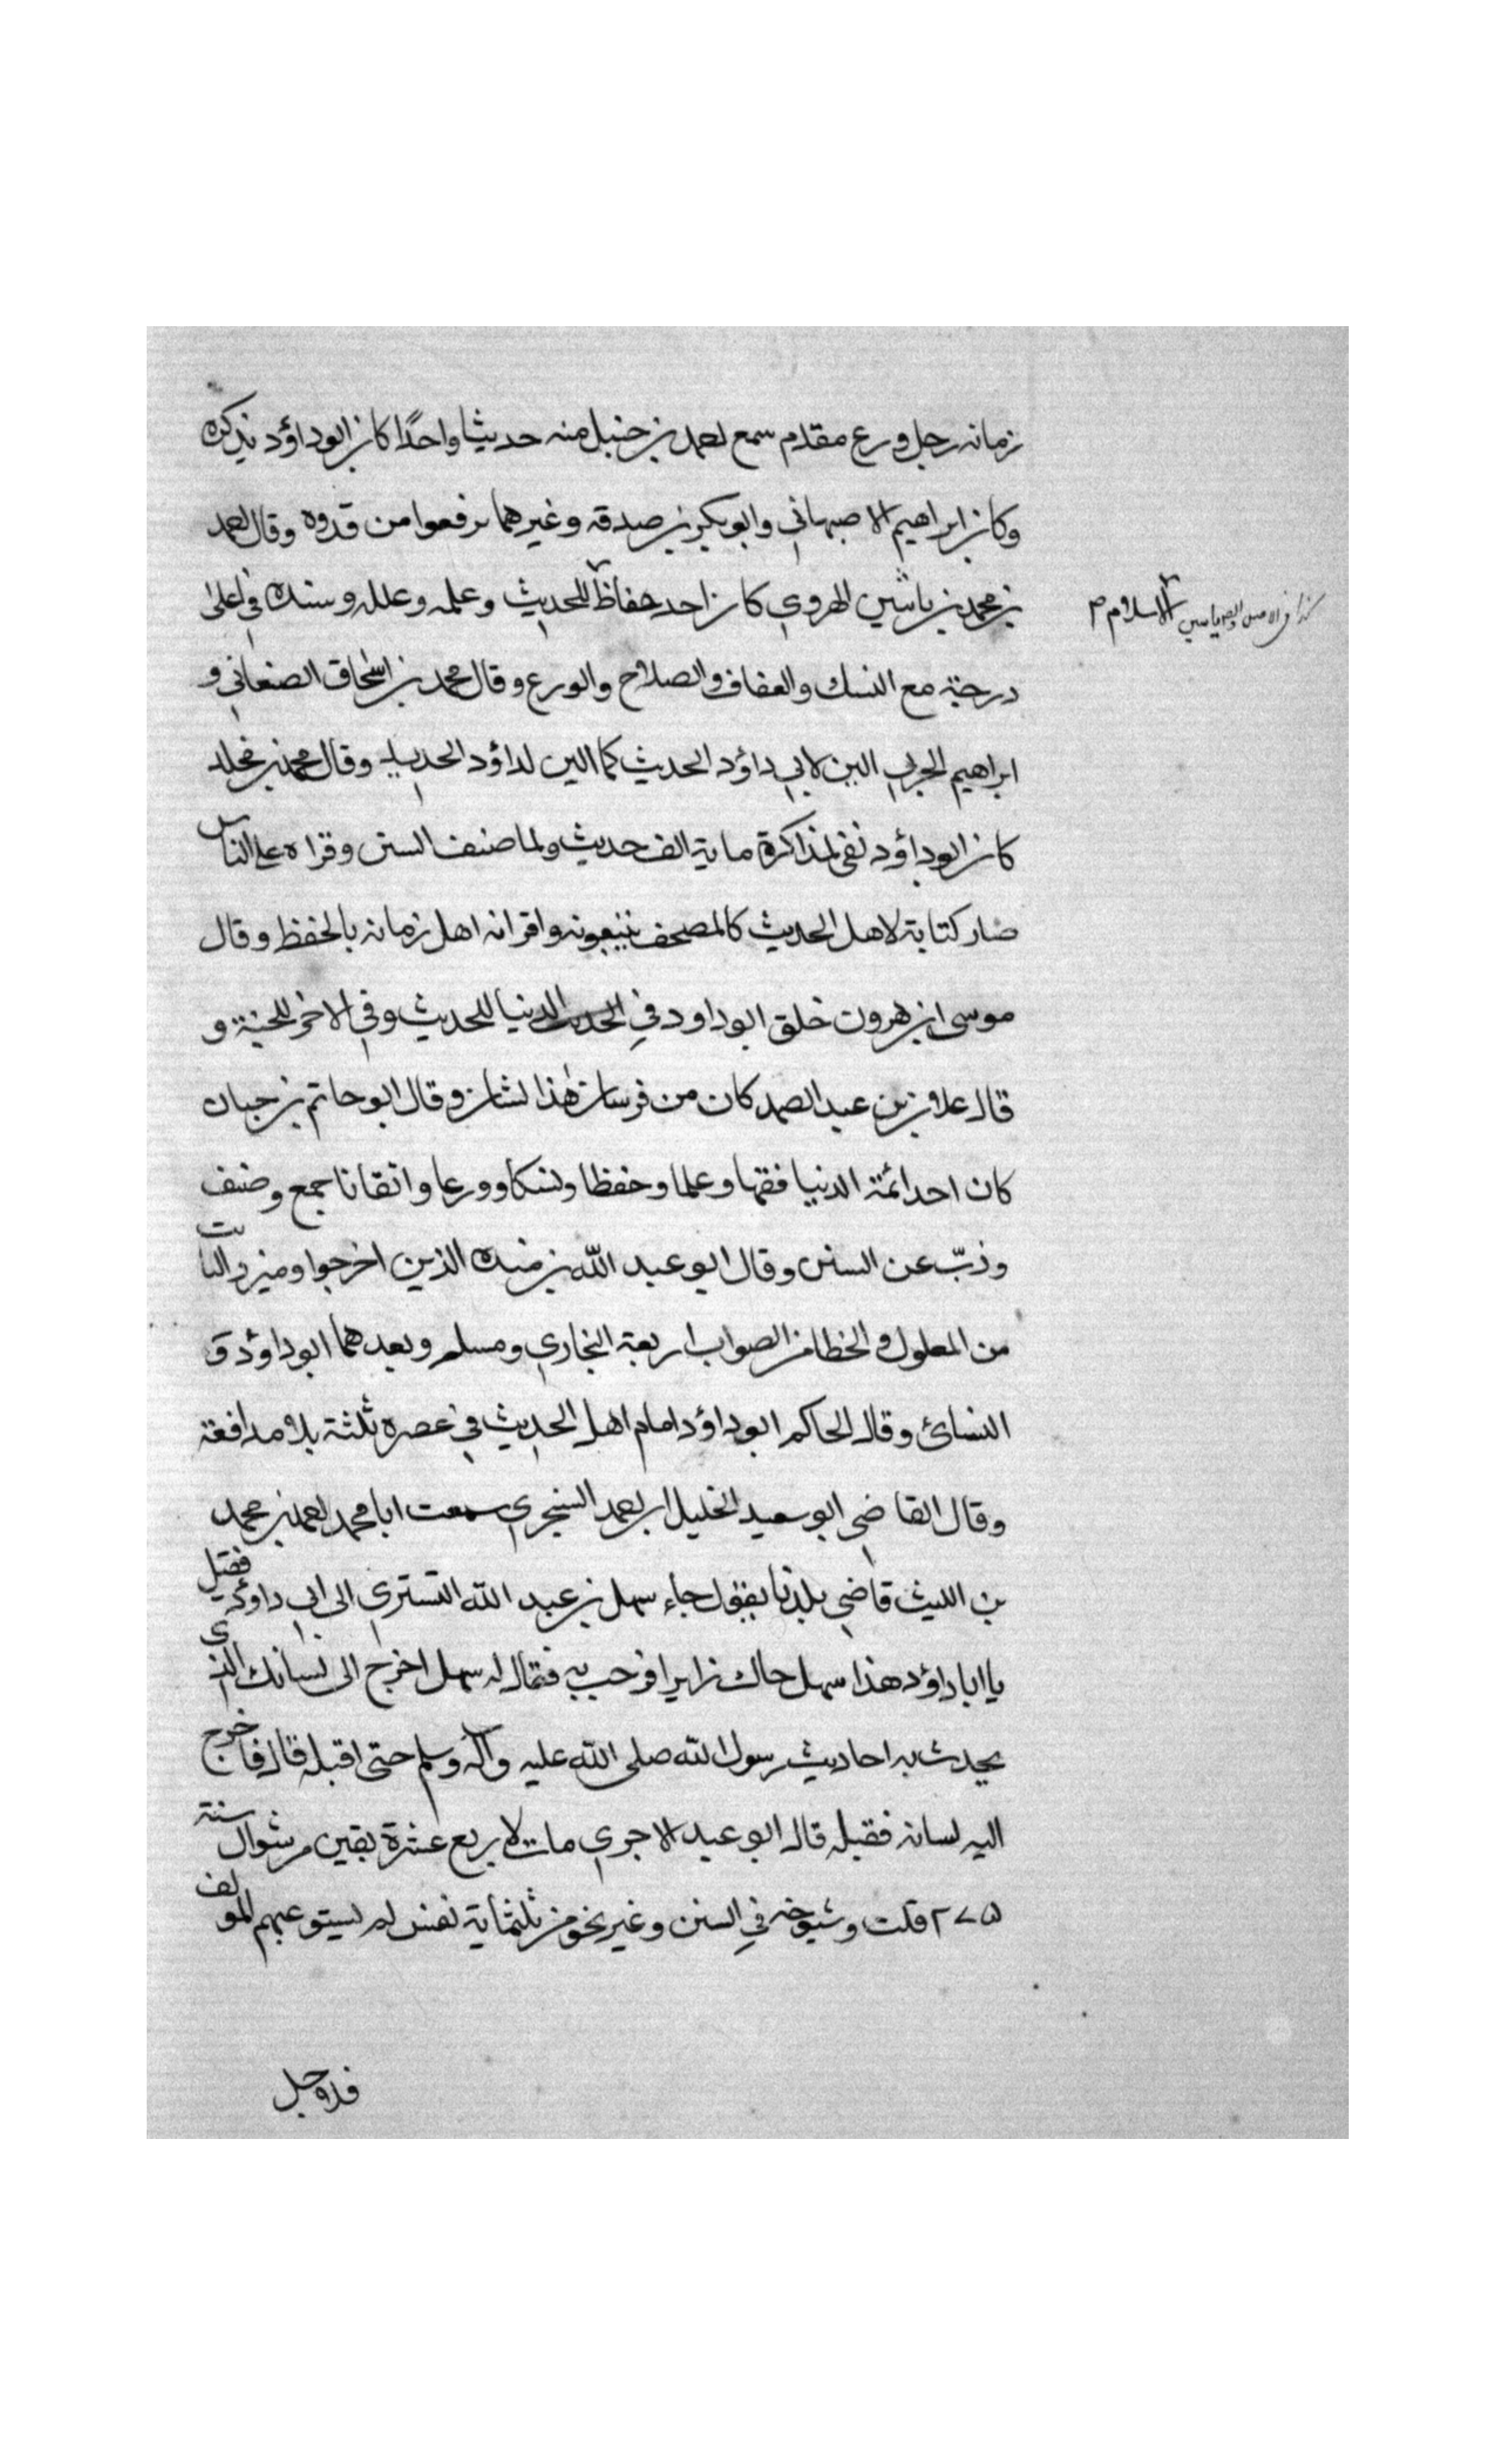 زمانه رجل ورع مقدم سمع احمد بن حنبل منه حديثا واحدًا كان ابوداؤد يذكره
وكان ابراهيم الاصبهاني وابوبكر بن صدقه وغيرهما يرفعوا من قدوه وقال احمد
بن محمد بن ياشين الهروي كان احد حفاظ للحديث وعلمه وعلله وسنده في اعلى
الاسلام ص
درجة مع النسك والعفاف والصلاح والورع وقال محمد بن اسحاق الصنعاني و
ابراهيم الحربي الين لابي داؤد الحديث كما الين لداؤد الحديد وقال محمد بن مخلد
كان ابوداؤد نفى لمذاكرة ماية الف حديث ولما صنف السنن وقراه على الناس
صار كتابة لاهل الحديث كالمصحف يتبعونه واقرانه اهل زمانه بالحفظ وقال
موسى ابن هرون خلق ابوداود في الدنيا للحديث وفي الاخر للجنة و
قال علان بن عبد الصمد كان من فرسان هذا لشان وقال ابو حاتم بن حبان
كان احد ائمة الدنيا فقها وعلما وحفظا ونسكا وورعا واتقانا جمع وصنف
وذبّ عن السنن وقال ابو عبد الله بن منده الذين اخرجوا وميزوا الثابت
من المعلول والخطا من الصواب اربعة البخاري ومسلم وبعدهما ابوداؤد و
النسائ وقال الحاكم ابوداؤد امام اهل الحديث في عصره ثلثة بلا مدافعة
وقال القاضي ابو سعيد الخليل ابن احمد السنجري سمعت ابا محمد احمد بن محمد
بن الليث قاضي بلدنا يقول جاء سهل بن عبد الله التستري الى ابي داؤد فقيل
يا ابا داؤد هذا سهل جاك زايرا فرحب به فقال له سهل اخرج الى لسانك الذي
يحدث به احاديث رسول الله صلى الله عليه وآله وسلم حتى اقبله قال فاخرج
اليه لسانه فقبله قال ابو عبيد الاجري مات لاربع عشرة بقين من شوال سنة
٢٧٥ قلت وشيوخه في السنن وغير نحو من ثلثماية نفس لم يستوعبهم المولف